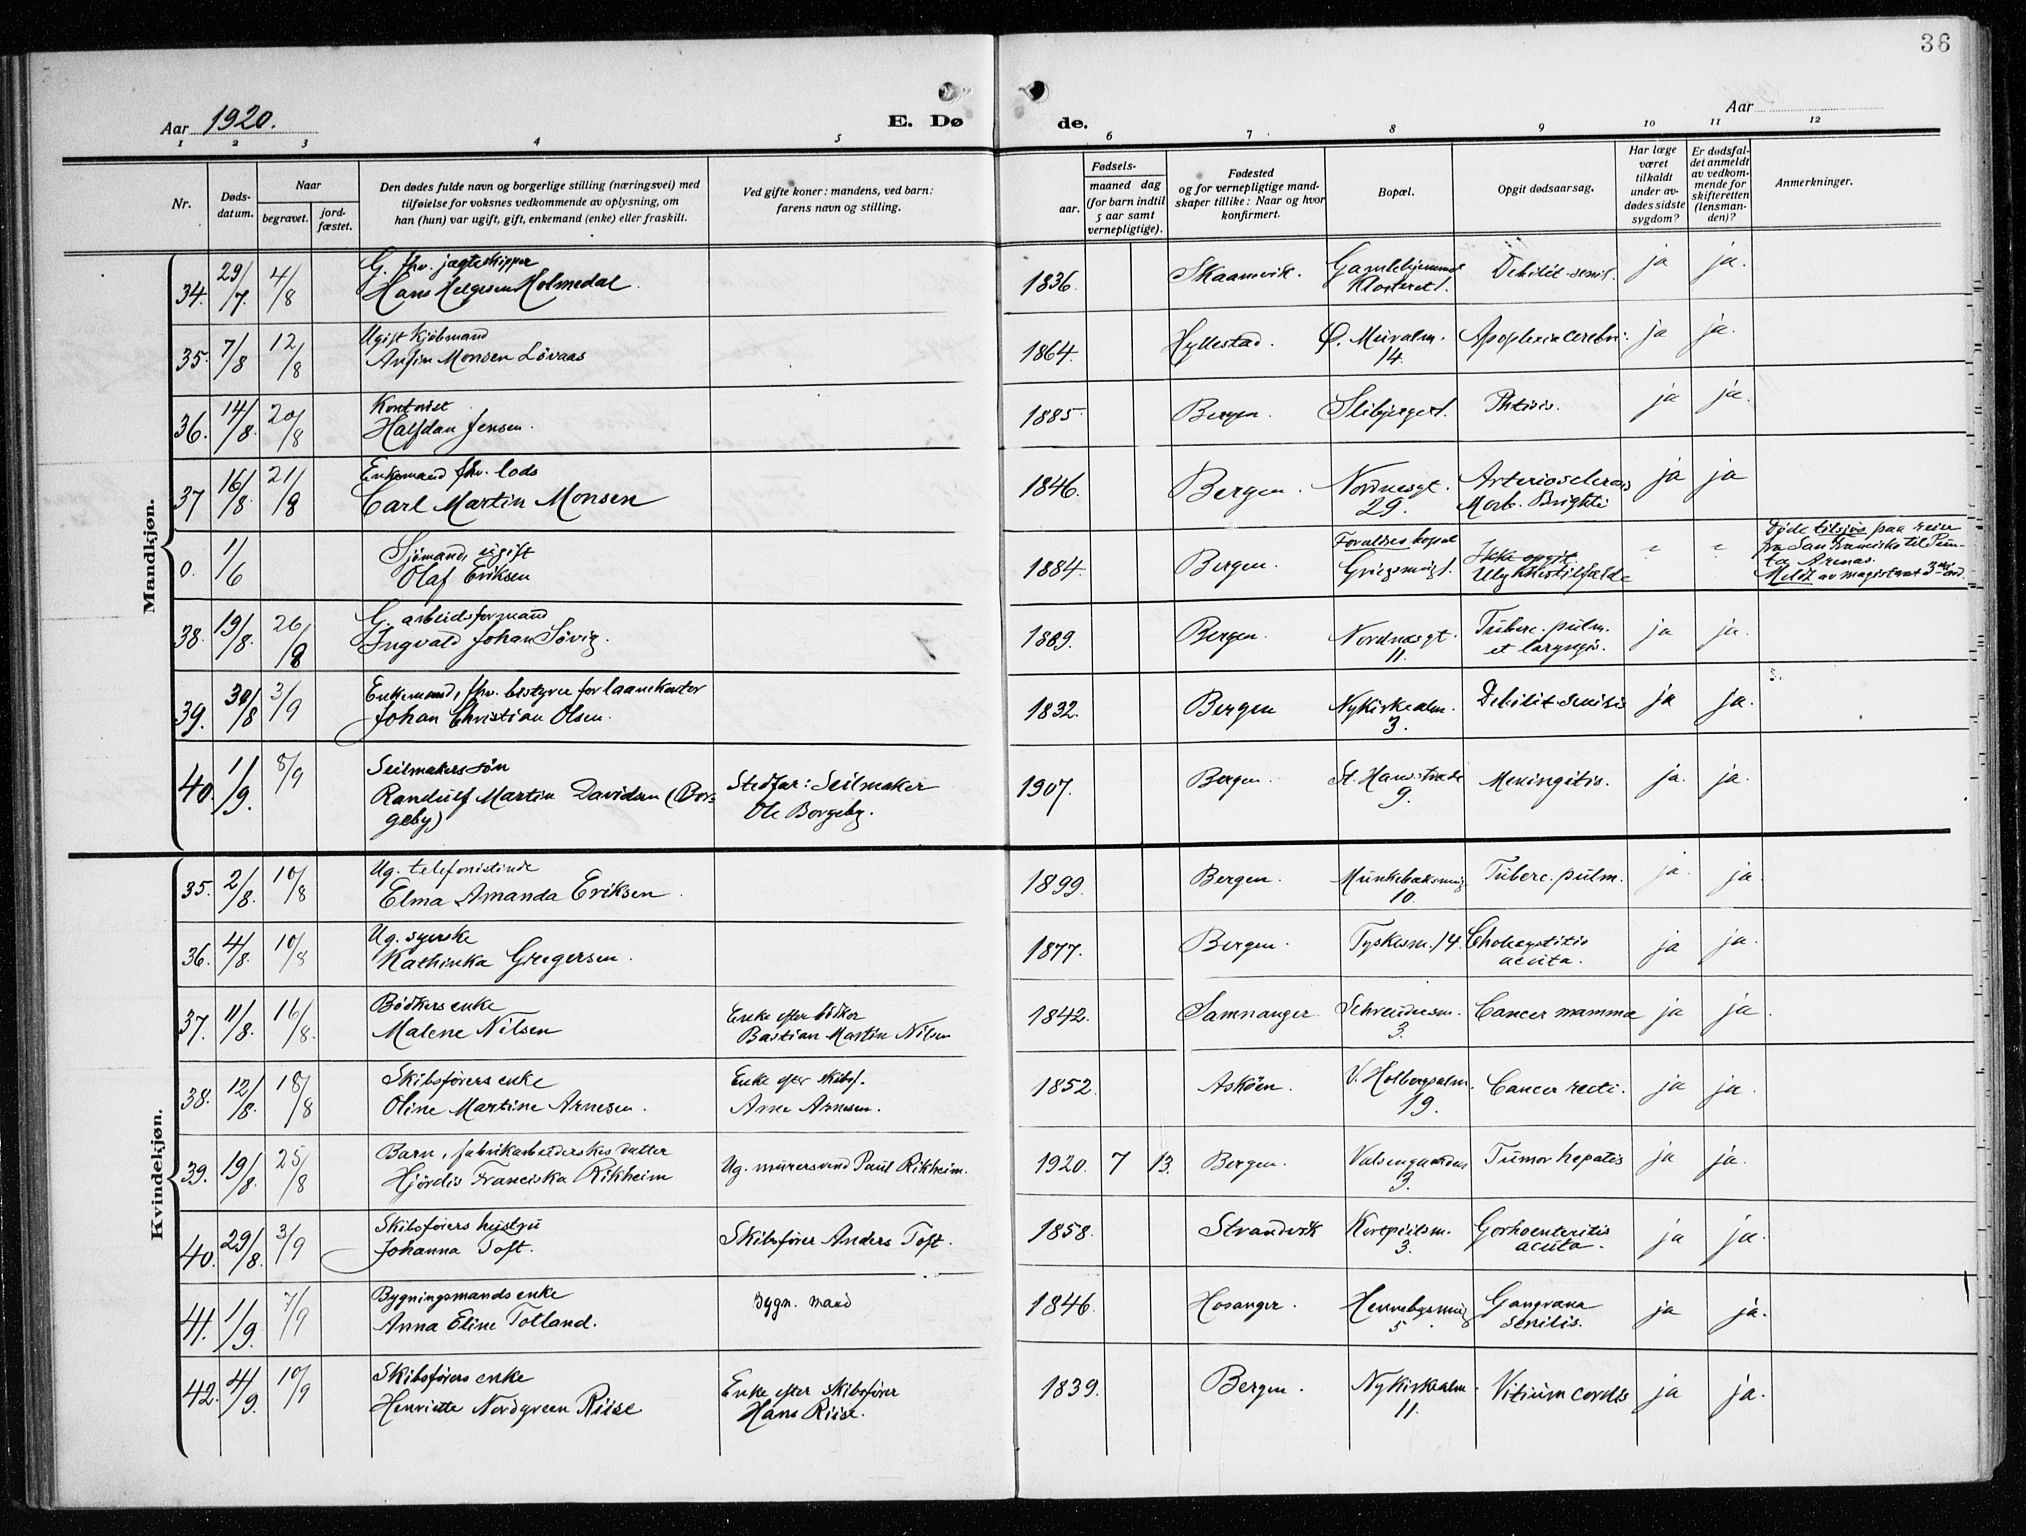 36
Aar 1920.
E. Dø
de.
Aar
1 2 3 4 5 6 7 8 9 10 11 12
Nr.
Døds-
datum.
Naar
begravet.
jord-
fæstet.
Den dødes fulde navn og borgerlige stilling (næringsvei) med
tilføielse for voksnes vedkommende av oplysning, om
han (hun) var ugift, gift, enkemand (enke) eller fraskilt.
Ved gifte koner: mandens, ved barn:
farens navn og stilling.
Fødsels-
aar.
maaned dag
(for barn indtil
5 aar samt
vernepligtige).
Fødested
og for vernepligtige mand-
skaper tillike: Naar og hvor
konfirmert.
Bopæl.
Opgit dødsaarsag.
Har læge
været
tilkaldt
under av-
dødes sidste
sygdom?
Er dødsfal-
det anmeldt
av vedkom-
mende for
skifteretten
(lensman-
den)?
Anmerkninger.
Mandkjøn.
34. 29/7. 4/8
G. fhv. jægteskipper
Hans Helgesen Holmedal.
1836. Skaanevik. Gamlehjemmet
Klosteret. Debilit. senil. ja ja.
35. 7/8 12/8
Ugift kjøbmand
Anfin Monsen Løvaas
1864. Hyllestad. Ø. Muralm.
14. Apoplexia cerebri. ja ja.
36. 14/8. 20/8
Kontorist
Halfdan Jensen.
1885. Bergen. Phtisis. ja ja.
37 16/8. 21/8
Enkemand fhv. lods
Carl Martin Monsen
1846. Bergen. Nordnesgt.
29. Arteriosclerosis
Morb. Brightii ja ja
0. 1/6
Sjømand, ugift
Olaf Eriksen
1884. Bergen. Forældres bopæl
Ikke opgit.
Ulykkestilfælde
Døde tilsjøs paa reise
fra San Francisko til Pun-
ta Arenas.
Meldt av magistraten 3die avd.
38. 19/8. 26/8
G. arbeidsformand
Ingvald Johan Søvig.
1889. Bergen. Nordnesgt.
11. Tuberc. pulm.
et laryngis. ja ja.
39. 30/8 3/9
Enkemand, fhv. bestyrer for laanekontor
Johan Christian Olsen.
1832. Bergen Nykirkealm.
3. Debilit. senilis ja ja.
40. 1/9. 8/9
Seilmakers søn
Randulf Martin Davidsen (Bor-
geby)
Stedfar: Seilmaker
Ole Borgeby.
1907. Bergen. St. Hansstræde
9. Meningitis. ja. ja.
Kvindekjøn.
35. 2/8. 10/8
Ug. telefonistinde
Elma Amanda Eriksen.
1899. Bergen. Munkebæksmug
10. Tuberc. pulm. ja. ja.
36. 4/8. 10/8
Ug. syerske
Kathinka Gregersen.
1877. Bergen. Tyskesm. 14. Cholecystitis
acuta. ja ja.
37. 11/8. 16/8.
Bødkers enke
Malene Nilsen
Enke efter bødker
Bastian Martin Nilsen
1842. Samnanger. Schreudersm.
3. Cancer mamma ja ja
38. 12/8. 18/8
Skibsførers enke
Oline Martine Arnesen.
Enke efter skibsf.
Arne Arnesen.
1852. Askøen. V. Holbergsalm.
19. Cancer recti. ja ja.
39. 19/8. 25/8
Barn, fabrikarbeiderskes datter
Hjørdis Franciska Rikheim
Ug. murersvend Paul Rikheim.
1920. 7 13. Bergen.
3. Tumor hepatis ja ja.
40. 29/8. 3/9
Skibsførers hustru
Johanna Toft.
Skibsfører Anders Toft.
1858. Strandvik Kortpiilsm.
3.
acuta. ja ja.
41. 1/9. 7/9
Bygningsmands enke
Anna Eline Totland.
Bygn. mand
1846. Hosanger. Hennebysmug
5. Gangræna
senilis. ja ja.
42. 4/9. 10/9
Skibsførers enke
Henriette Nordgreen Riise
Enke efter skibsfører
Hans Riise.
1839. Bergen. Nykirkealm.
11. Vitium cordis ja ja.